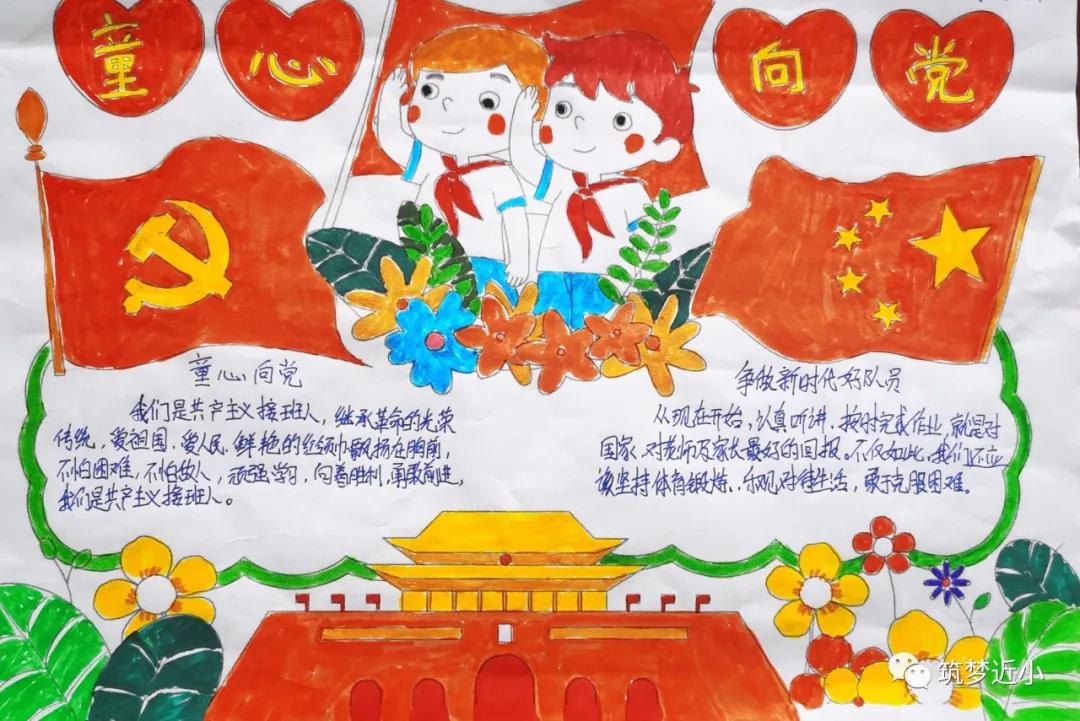 童心向党
童心向党
我们是共产主义接班人，继承革命的光荣
传统，爱祖国，爱人民，鲜艳的红领巾飘扬在胸前，
不怕困难，不怕敌人，顽强学习，向着胜利，勇敢前进，
我们是共产主义接班人。
争做新时代好队员
从现在开始，认真听讲，按时完成作业，就是对
国家，对老师及家长最好的回报。不仅如此，我们还应
该坚持体育锻炼，乐观对待生活，敢于克服困难。
筑梦近小